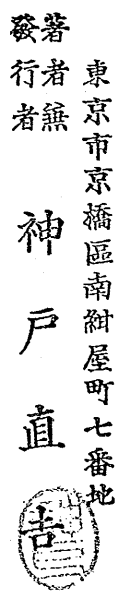 東京市京橋區南紺屋町七番地
著者兼
發行者
神戸直吉